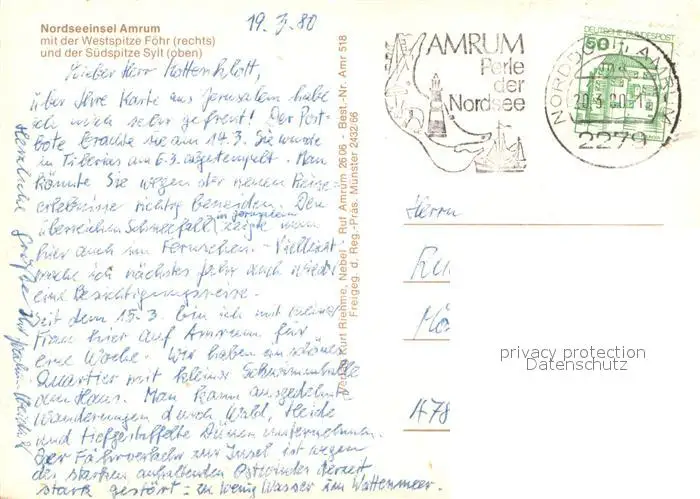 Nordseeinsel Amrum
mit der Westspitze Föhr (rechts)
und der Südspitze Sylt (oben)
19.3.80
Lieber Herr
über Ihre Karte aus Jerusalem habe
ich mich sehr gefreut! Der Post-
bote brachte sie am 14.3. Sie wurde
in Tiberias am 6.3. abgestempelt. Man
könnte Sie wegen der neuen Reise-
erlebnisse richtig beneiden. Den
überreichen Schneefall in Jerusalem zeigte man
hier auch im Fernsehen. - Vielleicht
mache ich nächstes Jahr auch wieder
eine Besichtigungsreise.
Seit dem 15.3. bin ich mit meiner
Frau hier auf Amrum für
eine Woche. Wir haben ein schönes
Quartier mit kleiner Schwimmhalle
am Haus. Man kann ausgedehnte
Wanderungen durch Wald, Heide
und tiefgestaffelte Dünen unternehmen.
Der Fährverkehr zur Insel ist wegen
des starken anhaltenden Ostwindes derzeit
stark gestört = zu wenig Wasser im Wattenmeer.
Herzliche Grüße Ihr
Verlag Kurt Riehme, Nebel Ruf Amrum 26 06 Best.-Nr. Amr 518
Freigeg. d. Reg.-Präs. Münster 2432/66
AMRUM
Perle
der
Nordsee
NORDDORF, AMRUM
20.3.80-1
2279
DEUTSCHE BUNDESPOST
50
Herrn
478
privacy protection
Datenschutz